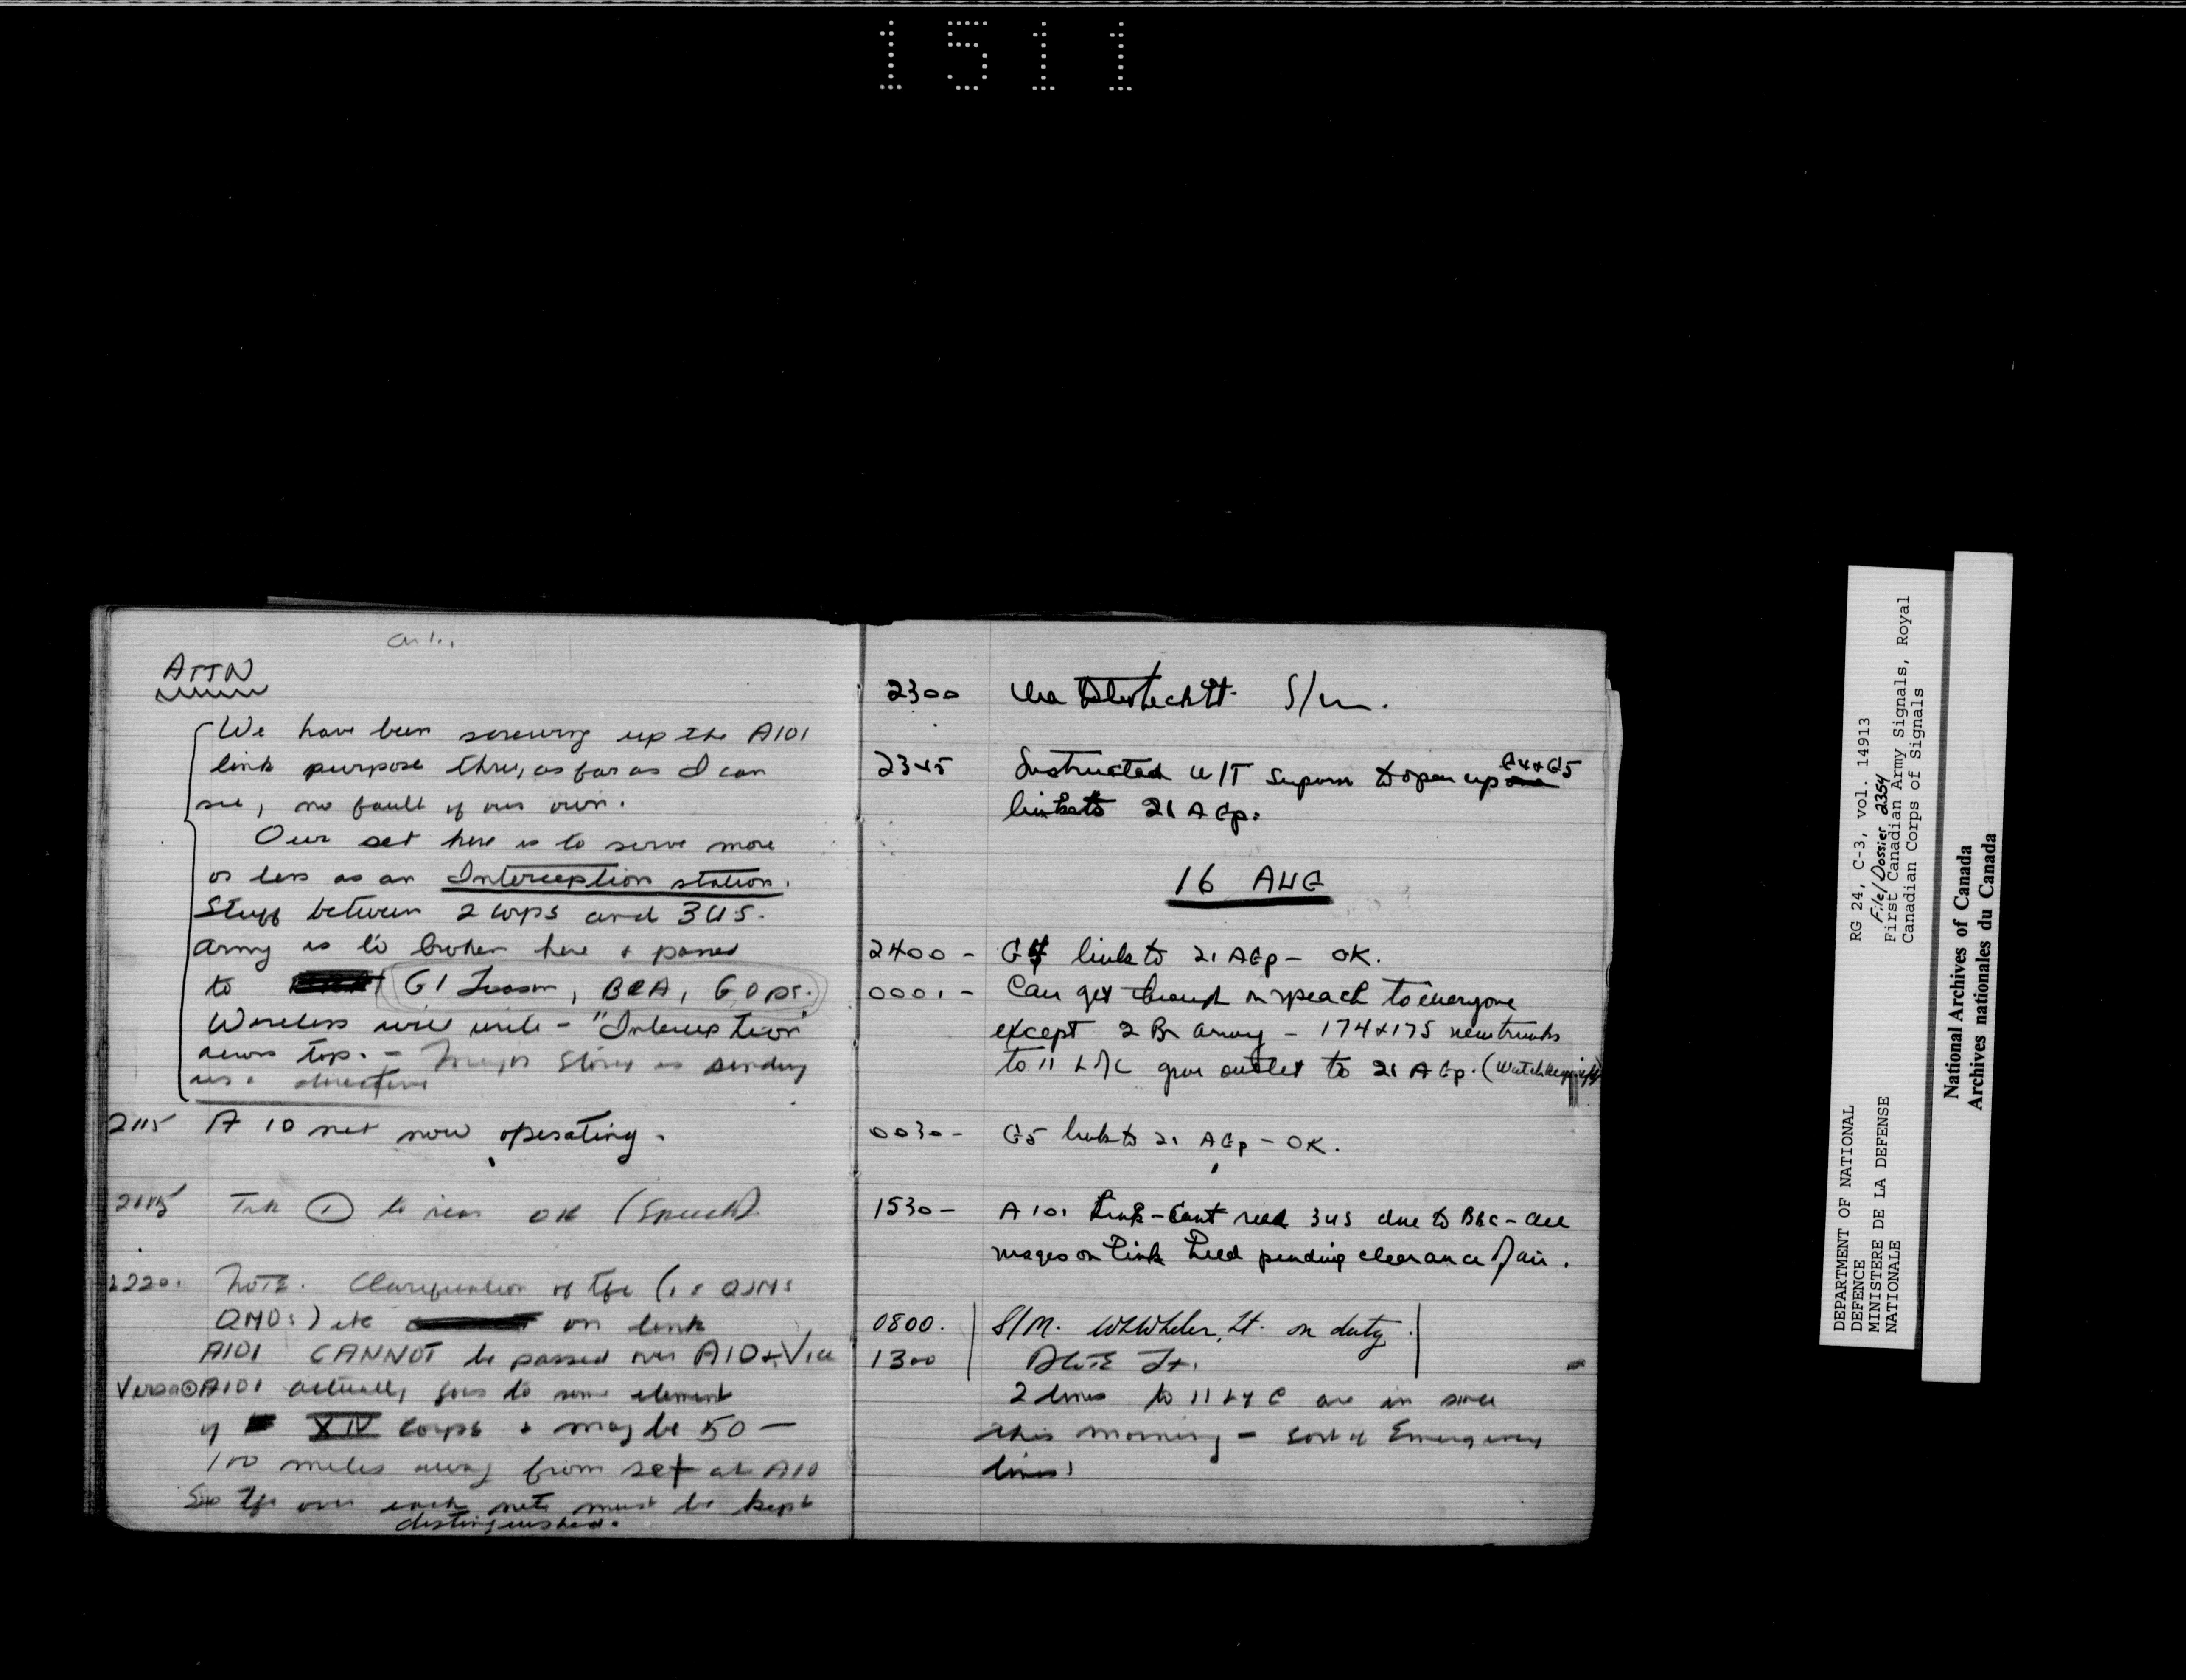 1511
ATTN
We have been screwing up the A101
link purpose thru, as far as I can
see, no fault of our own.
Our set here is to serve more
or less as an Interception station.
Stuff between 2 Corps and 3 US.
Army is to broken here & passed
to G1 Liason, BRA, G Ops.
Wireless will write - "Interception"
across top. - Major Stone is sending
us a directive
2115 A 10 net now operating.
2115 Trk 1 to rear OK (Speech)
2220. NOTE. Clarification of tfc (i e QJMs
QMDs) etc on link
A101 CANNOT be passed over A10 & Vice
Versa A101 actually goes to some element
of XIV Corps & may be 50 -
100 miles away from set at A10
So tfc over each nets must be kept
distinguished.
2300 Lt. S/M.
2345 Instructed W/T Supvr to open up G4 & G5
links to 21 A Gp.
16 AUG
2400 - G4 link to 21 A Gp - OK.
0001 - Can get through in speech to everyone
except 2 Br Army - 174 & 175 new trunks
to 11 L of C give outlet to 21 A Gp.
0030 - G5 link to 21 A Gp - OK.
1530 - A 101 Link - Cant read 3 US due to BBC - all
msges on link held pending clearance of air.
0800. S/M. Wheler, Lt. on duty.
1300 Lt.
2 lines to 11 L of C are in since
this morning - sort of Emergency
lines!
DEPARTMENT OF NATIONAL
DEFENCE
MINISTERE DE LA DEFENSE
NATIONALE
RG 24, C-3, vol. 14913
File/Dossier 2354
First Canadian Army Signals, Royal
Canadian Corps of Signals
National Archives of Canada
Archives nationales du Canada